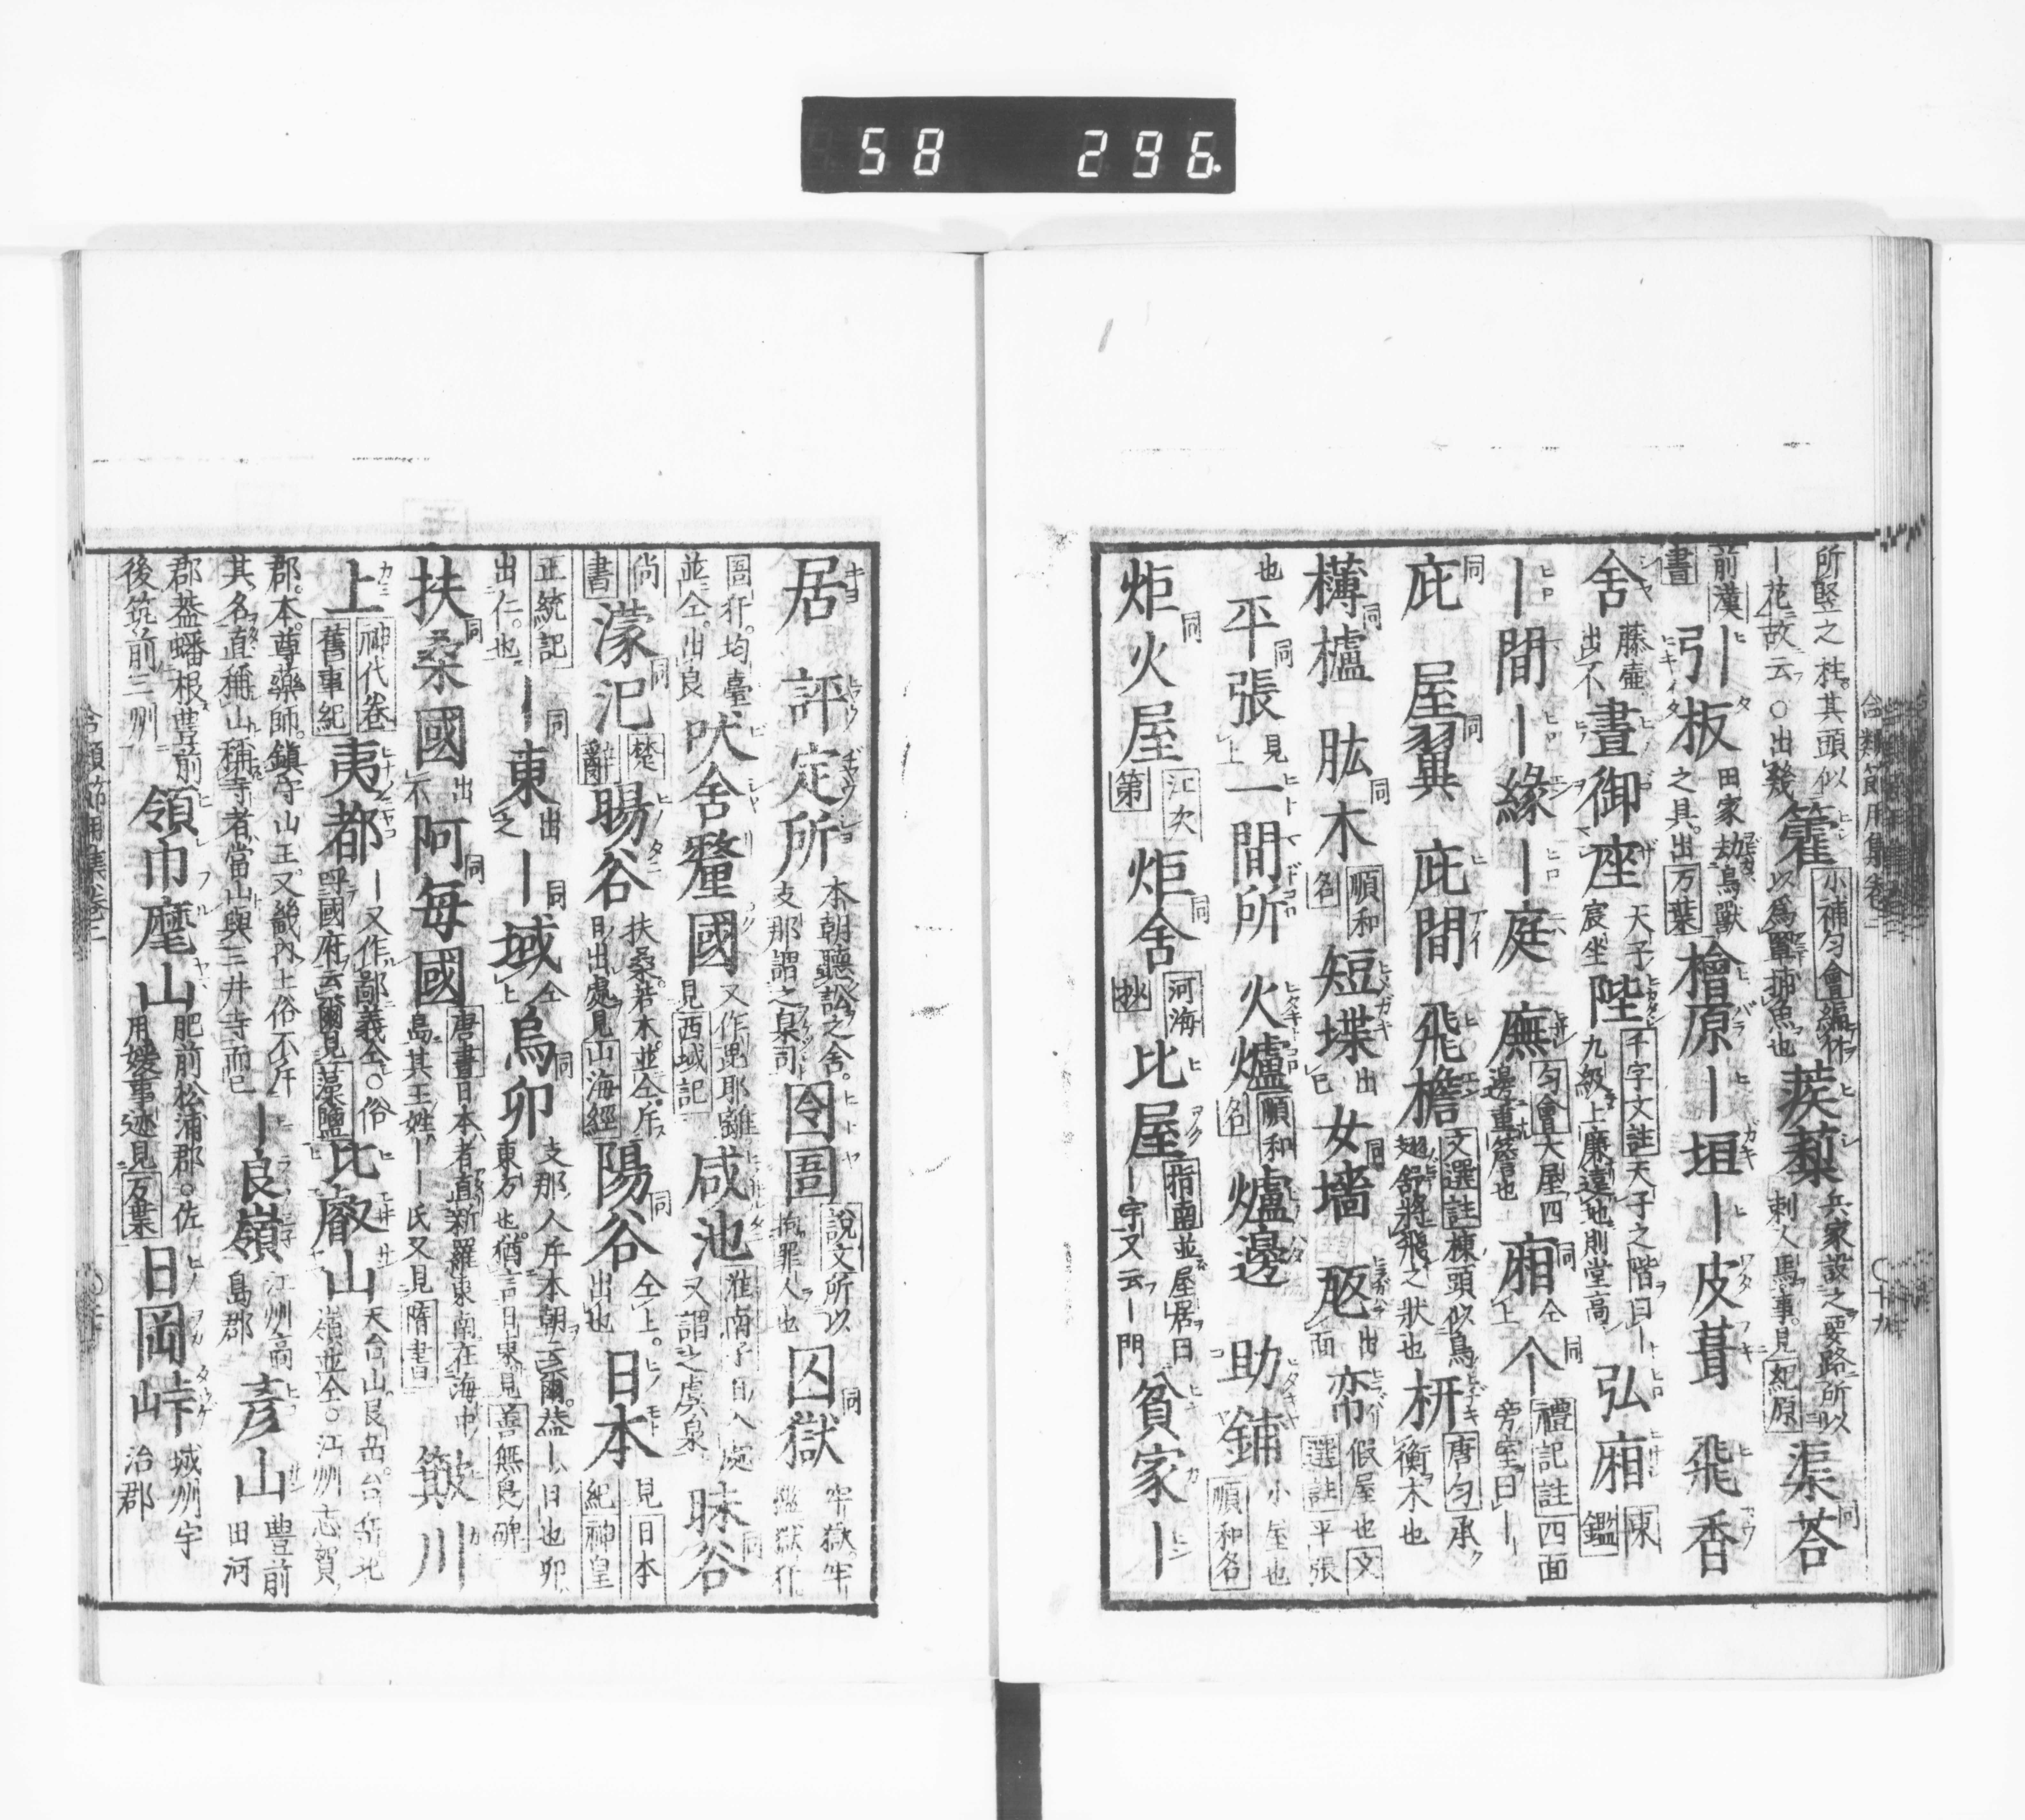 58 296
所竪之柱其頭似
ー花故云○出幾
籗 小補匀會編竹
以爲罩捕魚也
蒺藜 兵家設之要路所以
刺人馬事見紀原
渠荅 同
前漢
書
引板 田家劫鳥獸
之具出万葉
檜原ー垣ー皮葺 飛香
舍 藤壺
出不
晝御座 天子
宸坐
陛 千字文註天子之階曰ー
九級上廉遠地則堂高
弘廂 東
鑑
ー間ー緣ー庭 廡 匀會大屋四
邊重簷也
廂 同 仝
上
个 同 禮記註四面
旁室曰ー
庇 同 屋翼 同 庇間 飛檐 文選註棟頭似鳥
翅舒將飛之狀也
枅 唐匀承
衡木也
欂櫨 同 肱木 同 順和
名
短堞 出
已
女墻 同
出
面
帟 假屋也文
選註平張
也
平張 同 見
上
一間所 火爐 順和
名
爐邊 助鋪 小屋也
順和名
炬火屋 同 江次
第
炬舍 同 河海
抄
比屋 指南並屋居曰
ー宇又云ー門
貧家ー
合類節用集卷三
○十九
居 評定所 本朝聽訟之舍
支那謂之臬司
囹圄 說文所以
拘罪人也
囚獄 同 牢獄牢
圄犴均臺
並仝出良
吠舍釐國 又作毘耶離
見西域記
咸池 淮南子日入處
又謂之虞泉
昧谷 同
尚
書
濛汜 同 楚
辭
暘谷 扶桑若木並仝斥
日出處見山海經
陽谷 同 仝上
出也
日本 見日本
紀神皇
正統記
出仁也
ー東 同 出
之
ー域 同 仝
上
烏卯 同 支那人斥本朝云爾益ー日也卯
東方也猶言日東見善無畏碑
扶桑國 同 出
不
阿每國 同 唐書日本者直新羅東南在海中
島其王姓ーー氏又見隋書
簸川
上 神代卷
舊事紀
夷都 ー又作鄙義仝○俗
呼國府云爾見藻鹽
比叡山 天台山艮岳台岳北
嶺並仝○江州志賀
郡本尊藥師鎮守山王又畿內土俗不斥
其名直稱山稱寺者當山與三井寺而已
ー良嶺 江州高
島郡
彥山 豊前
田河
郡蓋蟠根豊前
後筑前三州
領巾麾山 肥前松浦郡○佐
用嬡事迹見万葉
日岡峠 城州宇
治郡